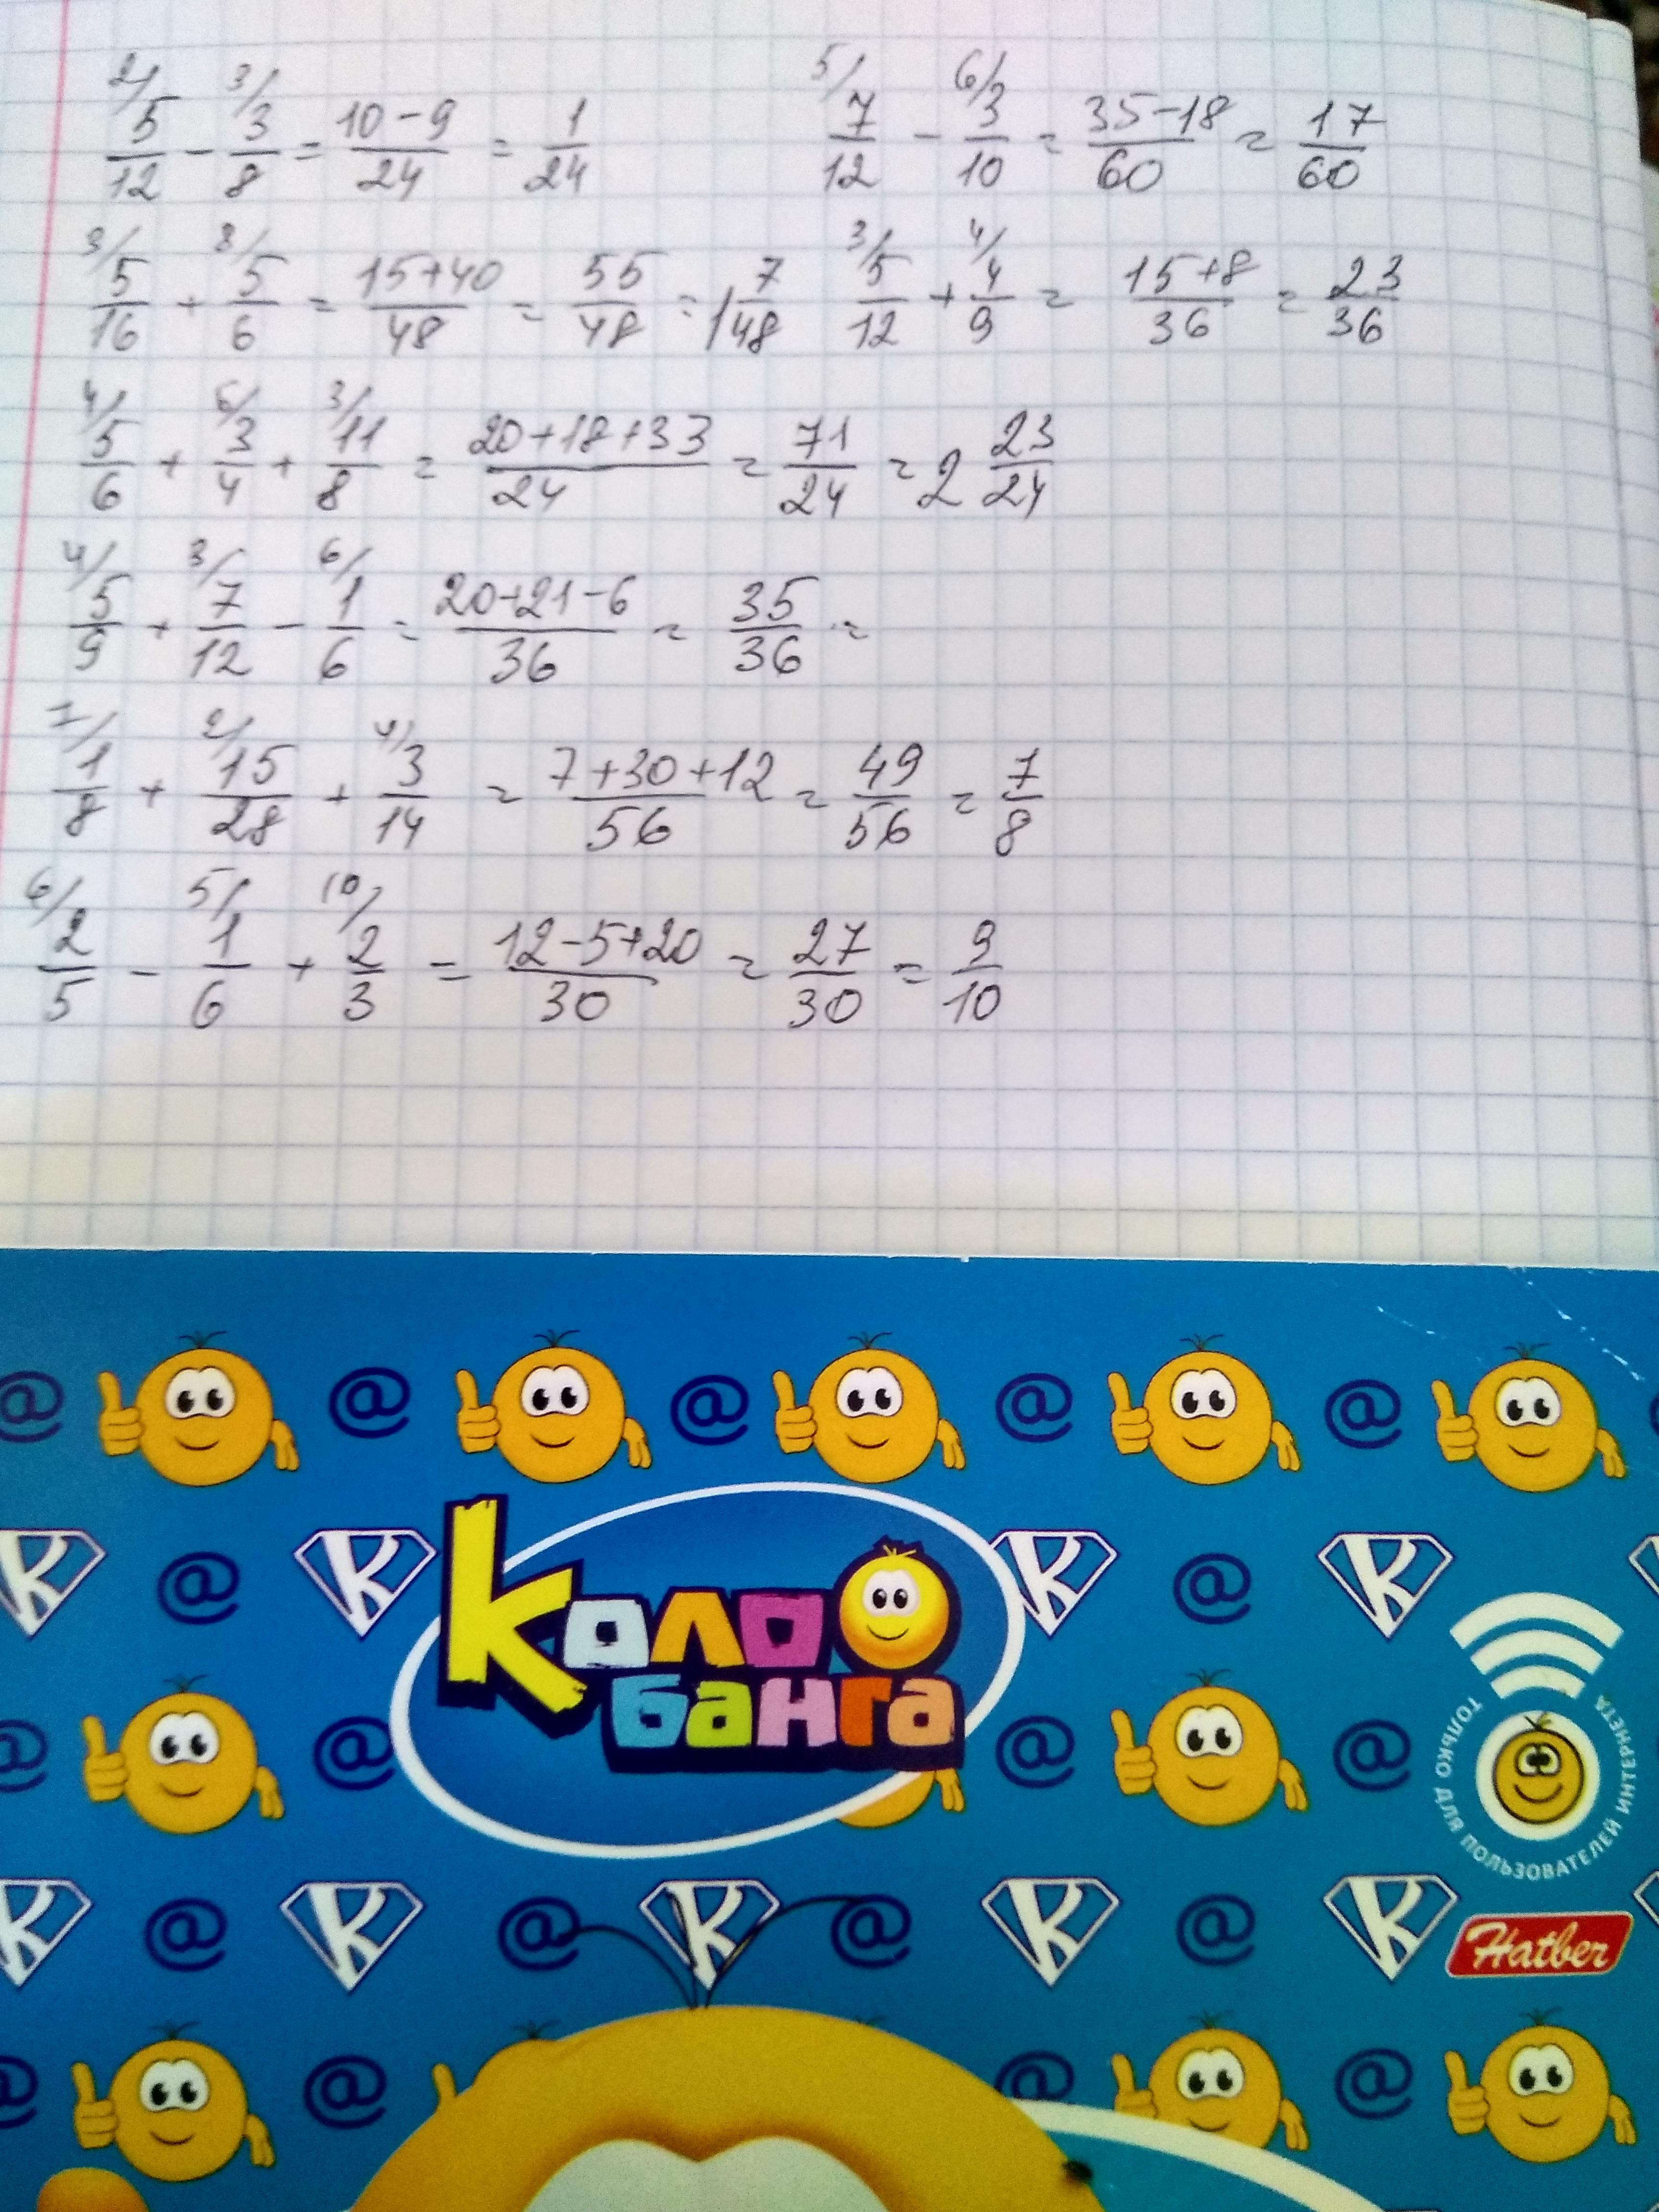 2/ 5/12 - 3/ 3/8 = (10-9)/24 = 1/24   5/ 7/12 - 6/ 3/10 = (35-18)/60 = 17/60
3/ 5/16 + 8/ 5/6 = (15+40)/48 = 55/48 = 1 7/48   3/ 5/12 + 4/ 4/9 = (15+8)/36 = 23/36
4/ 5/6 + 6/ 3/4 + 3/ 11/8 = (20+18+33)/24 = 71/24 = 2 23/24
4/ 5/9 + 3/ 7/12 - 6/ 1/6 = (20+21-6)/36 = 35/36 =
7/ 1/8 + 2/ 15/28 + 4/ 3/14 = (7+30+12)/56 = 49/56 = 7/8
6/ 2/5 - 5/ 1/6 + 10/ 2/3 = (12-5+20)/30 = 27/30 = 9/10
Коло
банга
ТОЛЬКО ДЛЯ ПОЛЬЗОВАТЕЛЕЙ ИНТЕРНЕТА
Hatber